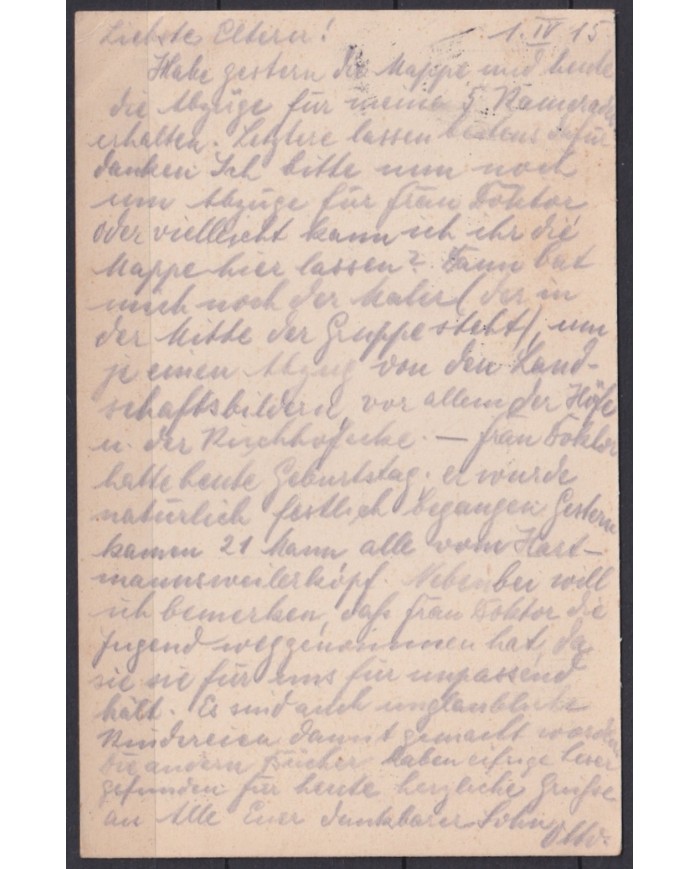 Liebste Eltern! 1. IV 15
Habe gestern die Mappe und heute
die Abzüge für meine 5 Kameraden
erhalten. Letztere lassen bestens dafür
danken Ich bitte nun noch
um Abzüge für Frau Doktor
oder vielleicht kann ich ihr die
Mappe hier lassen? Dann bat
mich noch der Maler (der in
der Mitte der Gruppe steht), um
je einen Abzug von den Land-
schaftsbildern, vor allem der Höfe
u. der Kirchhofecke. — Frau Doktor
hatte heute Geburtstag. er wurde
natürlich festlich begangen Gestern
kamen 21 Mann alle vom Hart-
mannsweilerkopf. Nebenbei will
ich bemerken, daß Frau Doktor die
Jugend weggenommen hat, da
sie sie für uns für unpassend
hält. Es sind auch unglaubliche
Kindereien damit gemacht worden
Die andern Bücher haben eifrige Leser
gefunden für heute herzliche Grüße
an Alle Euer dankbarer Sohn
Otto.